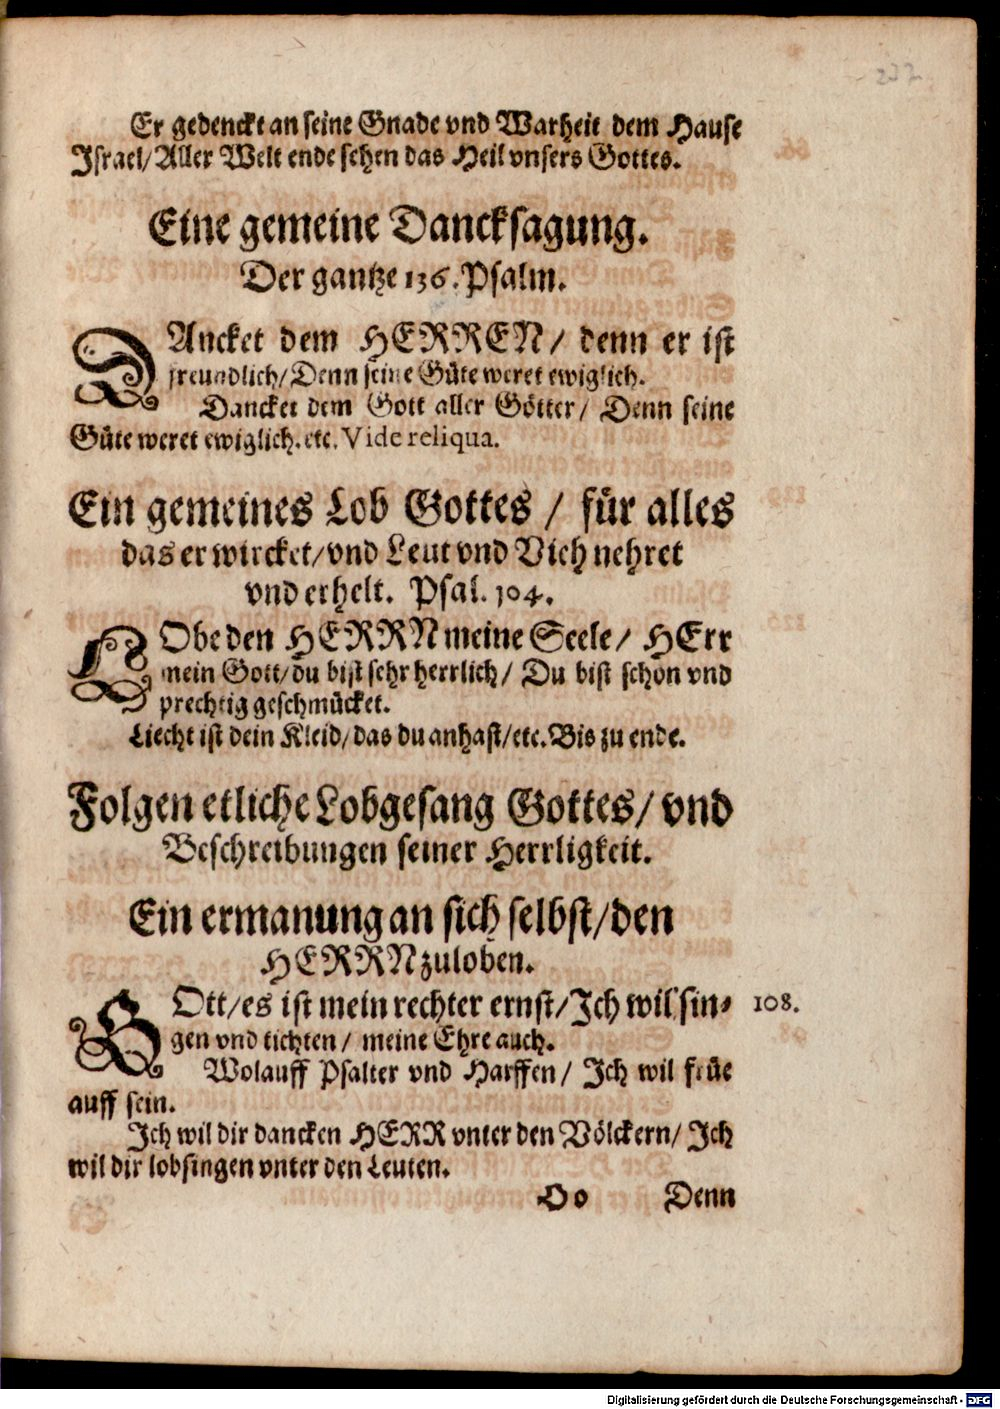 232
Er gedenckt an seine Gnade vnd Warheit dem Hause
Israel/ Aller Welt ende sehen das Heil vnsers Gottes.
Eine gemeine Dancksagung.
Der gantze 136. Psalm.
DAncket dem HERREN/ denn er ist
freundlich/ Denn seine Güte weret ewiglich.
Dancket dem Gott aller Götter/ Denn seine
Güte weret ewiglich. etc. Vide reliqua.
Ein gemeines Lob Gottes / für alles
das er wircket/ vnd Leut vnd Vieh nehret
vnd erhelt. Psal. 104.
LObe den HERRN meine Seele/ HErr
mein Gott/ du bist sehr herrlich/ Du bist schon vnd
prechtig geschmücket.
Liecht ist dein Kleid/ das du anhast/ etc. Bis zu ende.
Folgen etliche Lobgesang Gottes/ vnd
Beschreibungen seiner Herrligkeit.
Ein ermanung an sich selbst/ den
HERRN zuloben.
GOtt/ es ist mein rechter ernst/ Ich wil sin- 108.
gen vnd tichten/ meine Ehre auch.
Wolauff Psalter vnd Harffen/ Ich wil früe
auff sein.
Ich wil dir dancken HERR vnter den Völckern/ Ich
wil dir lobsingen vnter den Leuten.
Oo Denn
Digitalisierung gefördert durch die Deutsche Forschungsgemeinschaft - DFG